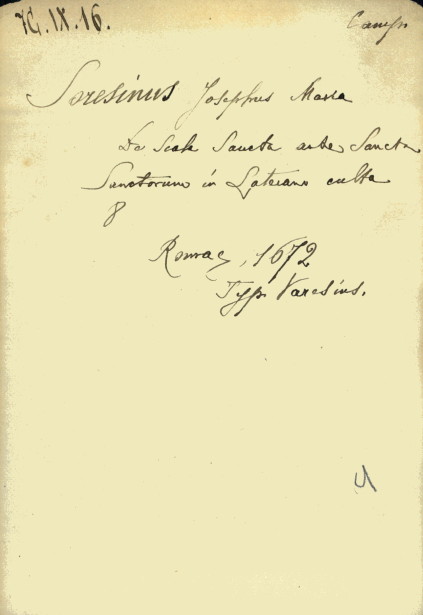 7G.IX.16.
Camp
Soresinus Josephus Maria
De Scala Sancta ante Sancta
Sanctorum in Laterano culta
8
Romae, 1672
Typ. Varesius.